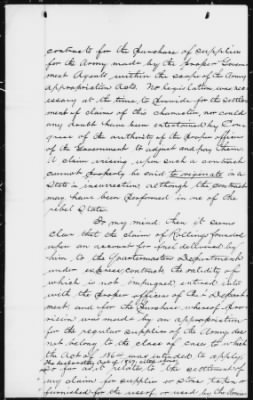 contracts for the purchase of supplies
for the Army made by the proper Govern-
ment Agents, within the scope of the Army
appropriation Acts. No legislation was nec-
essary at the time, to provide for the settle-
ment of claims of this character, nor could
any doubt have been entertained by Con-
gress of the authority of the proper officers
of the Government to adjust and pay them.
A claim arising upon such a contract
cannot properly be said to originate in a
State in insurrection although the contract
may have been performed in one of the
rebel States.
To my mind then it seems
clear that the claim of Rollings founded
upon an account for fuel delivered by
him to the Quartermasters Department
under express contract, the validity of
which is not impugned, entered into
with the proper officers of the Depart-
ment, and for the purchase whereof prov-
ision was made by an appropriation
for the regular supplies of the Army does
not belong to the class of cases to which
the Act of 1864 was intended to apply.
so far as it relates to the settlement of
any claim for supplies or stores taken or
furnished for the use of or used by the Armies